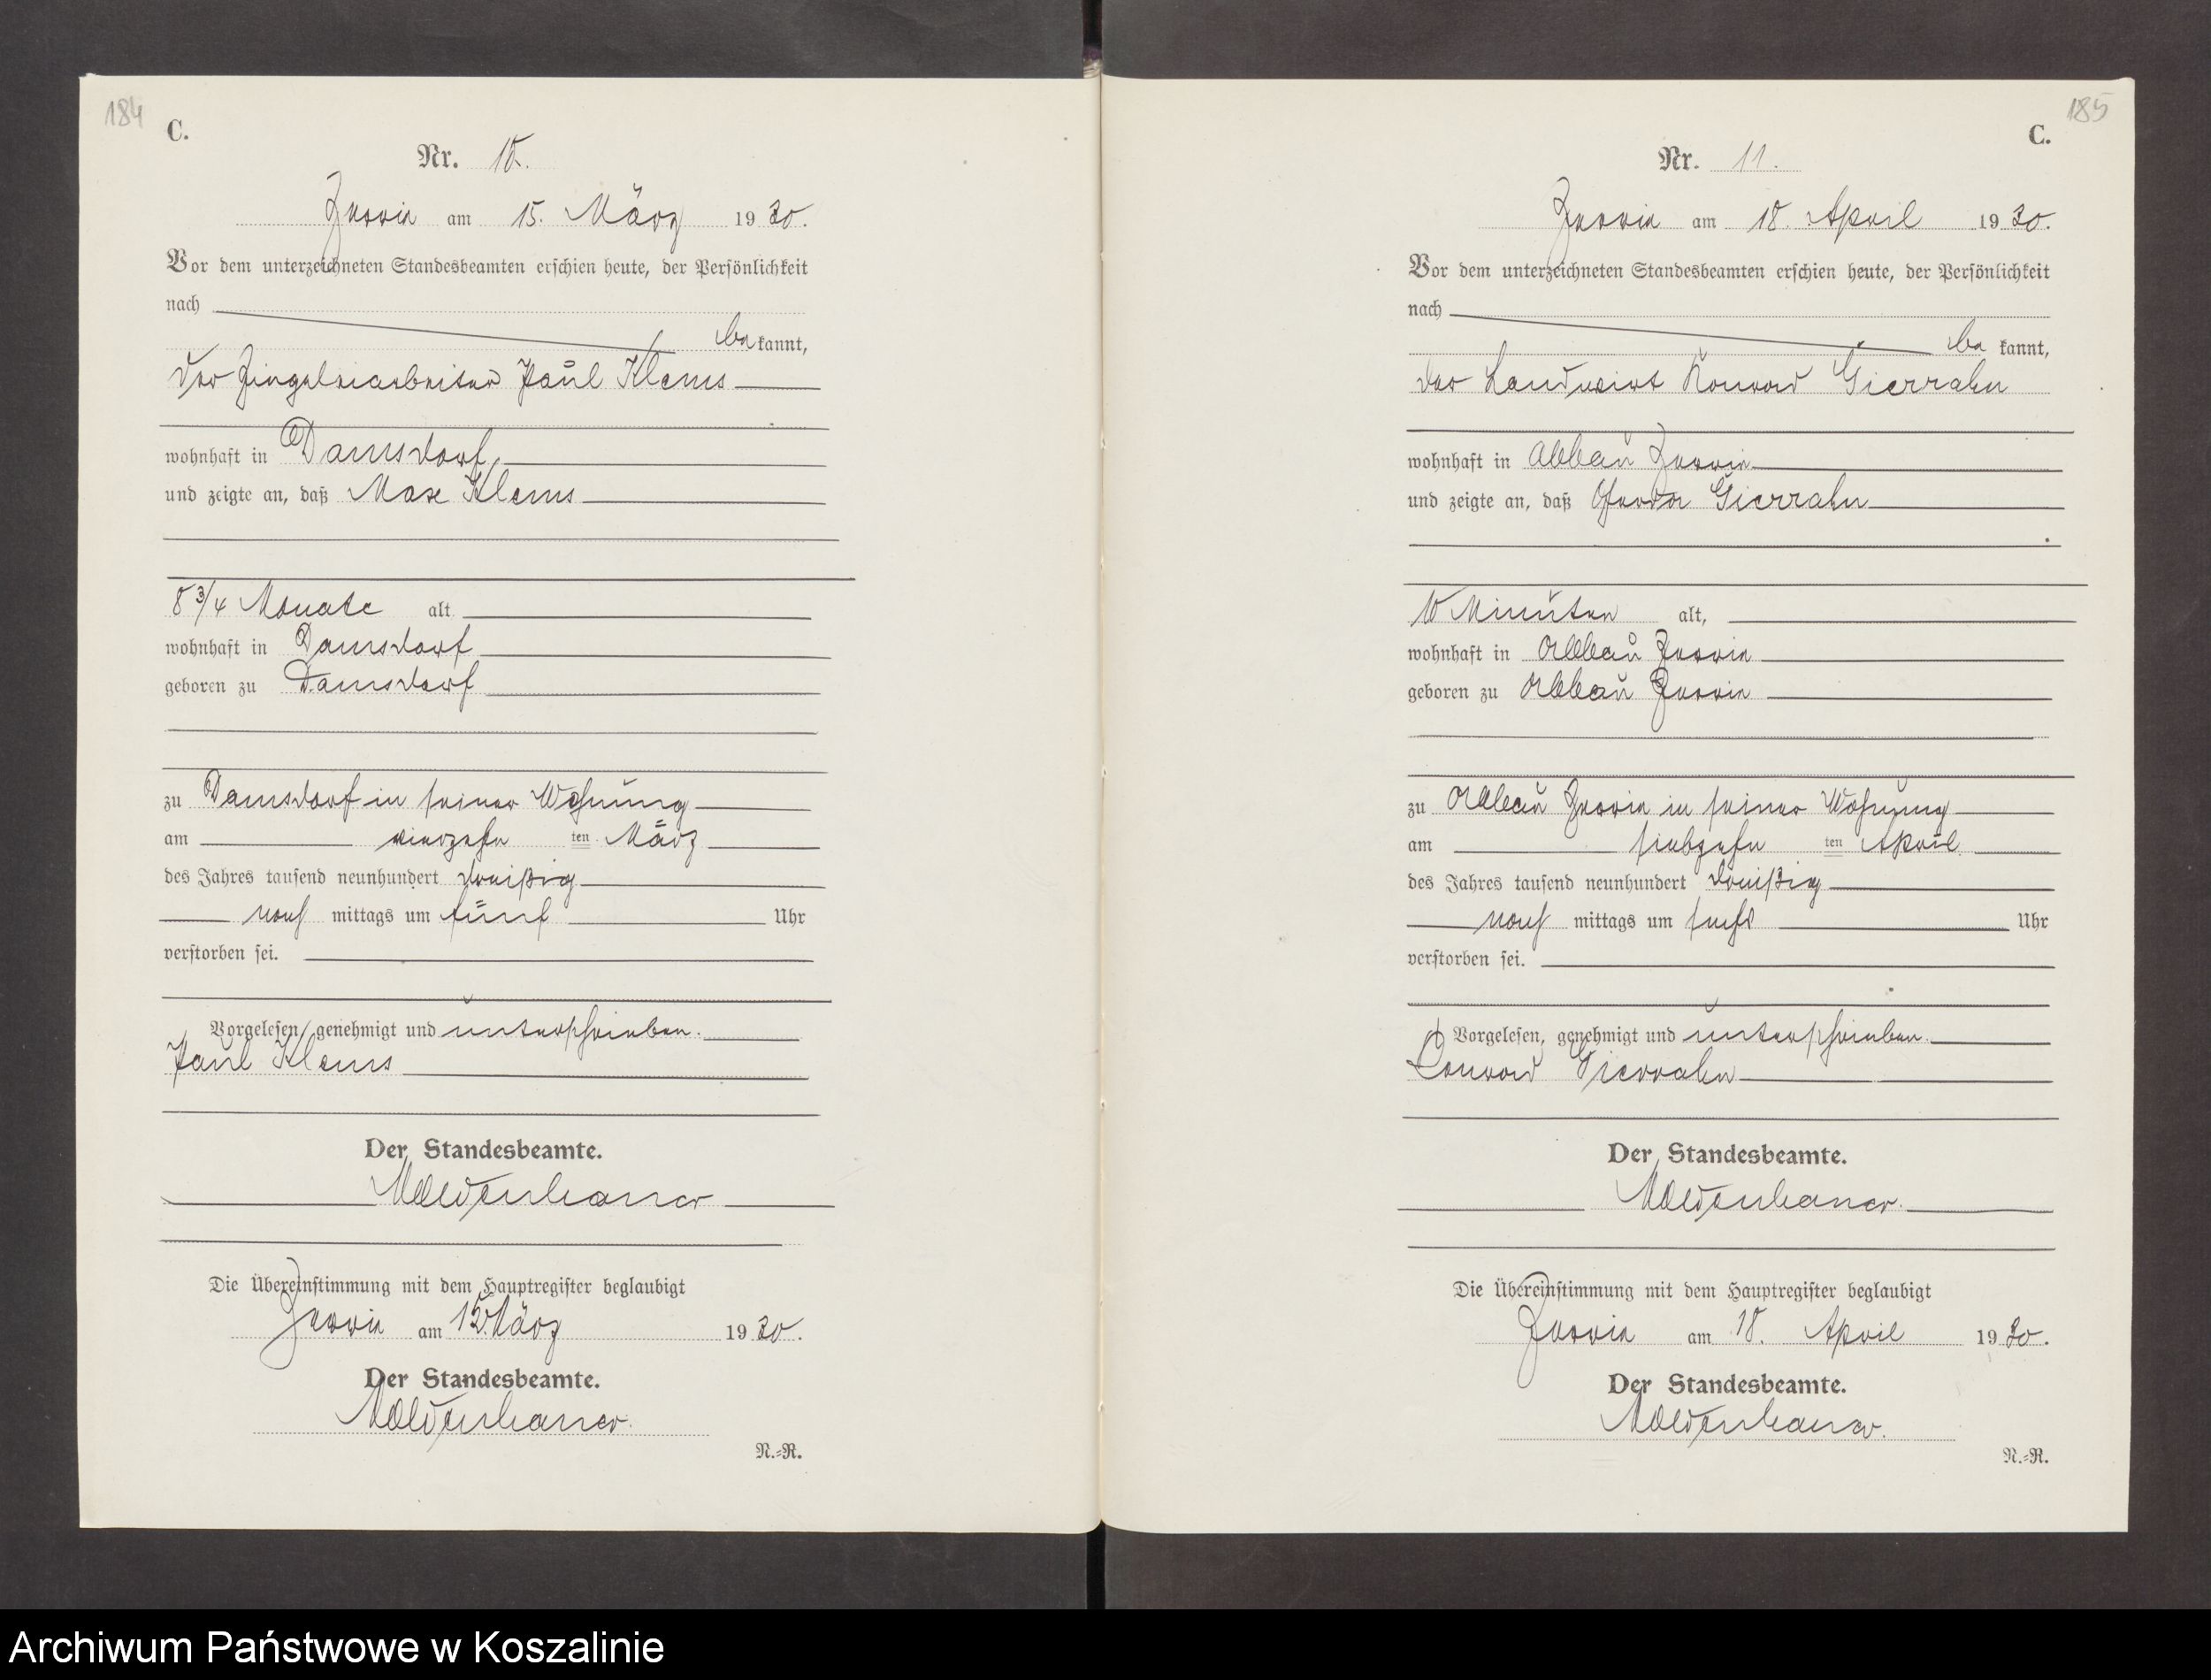 184
C.
Nr. 10.
Zerrin am 15. März 1930.
Vor dem unterzeichneten Standesbeamten erschien heute, der Persönlichkeit
nach
be kannt,
der Ziegeleiarbeiter Paul Klems
wohnhaft in Damsdorf,
und zeigte an, daß Max Klems
8 3/4 Monate alt
wohnhaft in Damsdorf
geboren zu Damsdorf
zu Damsdorf in seiner Wohnung
am vierzehn ten März
des Jahres tausend neunhundert dreißig
nach mittags um fünf Uhr
verstorben sei.
Vorgelesen, genehmigt und unterschrieben.
Paul Klems
Der Standesbeamte.
Moldenhauer
Die Übereinstimmung mit dem Hauptregister beglaubigt
Zerrin am 15. März 1930.
Der Standesbeamte.
Moldenhauer.
N.=R.
185
C.
Nr. 11.
Zerrin am 18. April 1930.
Vor dem unterzeichneten Standesbeamten erschien heute, der Persönlichkeit
nach
be kannt,
der Landwirt Konrad Gierrahn
wohnhaft in Abbau Zerrin
und zeigte an, daß Gierrahn
10 Minuten alt,
wohnhaft in Abbau Zerrin
geboren zu Abbau Zerrin
zu Abbau Zerrin in seiner Wohnung
am siebzehn ten April
des Jahres tausend neunhundert dreißig
nach mittags um sechs Uhr
verstorben sei.
Vorgelesen, genehmigt und unterschrieben.
Konrad Gierrahn
Der Standesbeamte.
Moldenhauer.
Die Übereinstimmung mit dem Hauptregister beglaubigt
Zerrin am 18. April 1930.
Der Standesbeamte.
Moldenhauer.
N.=R.
Archiwum Państwowe w Koszalinie